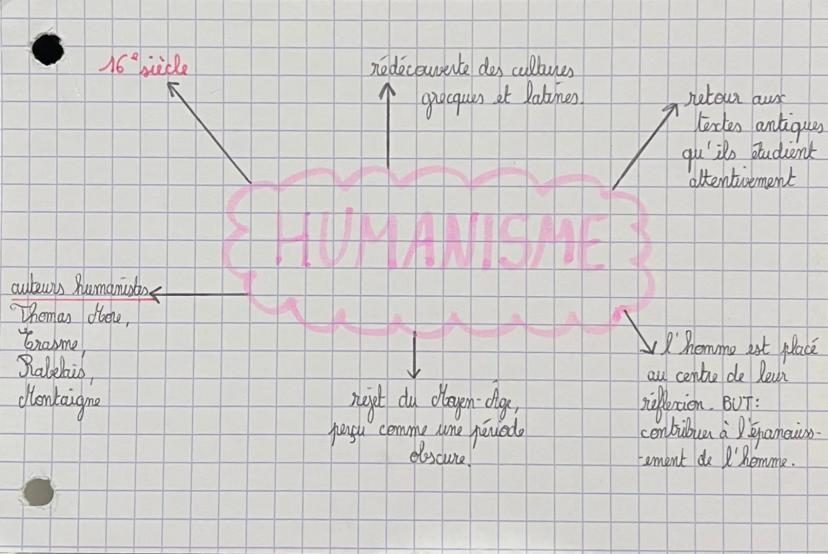 16e siècle
rédécouverte des cultures
grecques et latines.
retour aux
textes antiques
qu'ils étudient
attentivement
HUMANISME
auteurs humanistes
Thomas More,
Erasme,
Rabelais,
Montaigne
rejet du Moyen-Âge,
perçu comme une période
obscure.
l'homme est placé
au centre de leur
réflexion. BUT:
contribuer à l'épanouiss-
-ement de l'homme.